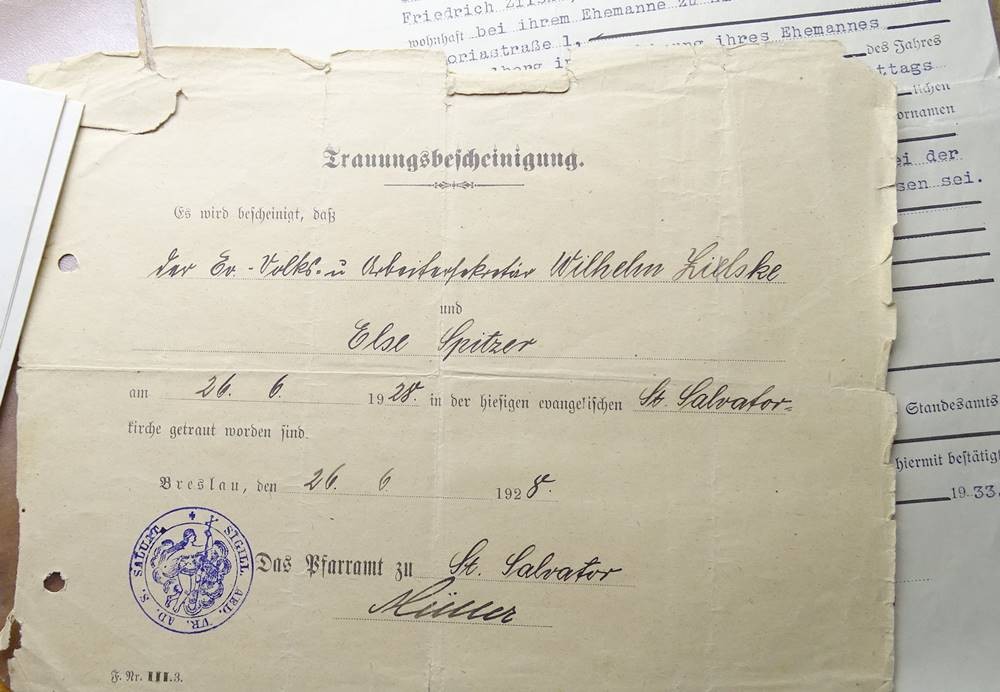 Friedrich
wohnhaft bei ihrem Ehemanne zu
oriastraße 1,
ihres Ehemannes
des Jahres
ttags
lichen
ornamen
ei der
sen sei.
Trauungsbescheinigung.
Es wird bescheinigt, daß
der Ev.-Volks- u Arbeitersekretär Wilhelm Zielske
und
Else Spitzer
am 26. 6. 1928. in der hiesigen evangelischen St. Salvator-
kirche getraut worden sind.
Breslau, den 26. 6. 1928.
Das Pfarramt zu St. Salvator
Müller
SIGILL. AED. VR. AD. S. SALUAT.
F. Nr. III.3.
Standesamts
hiermit bestätigt
1933.